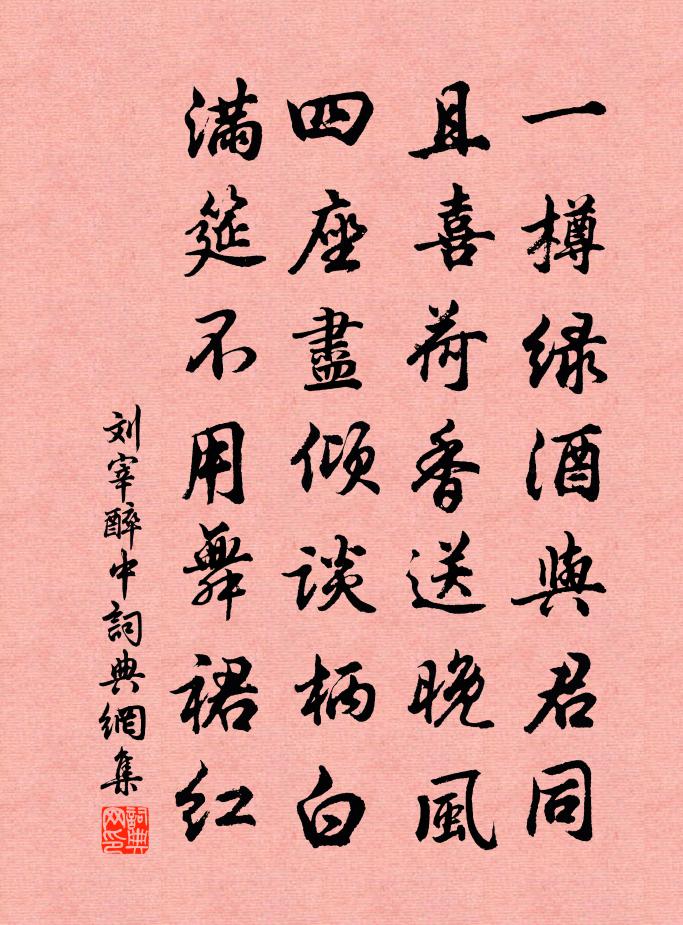 一樽绿酒與君同
且喜荷香送晚風
四座盡倾談柄白
滿筵不用舞裙红
刘宰醉中詞典網集
詞典网印